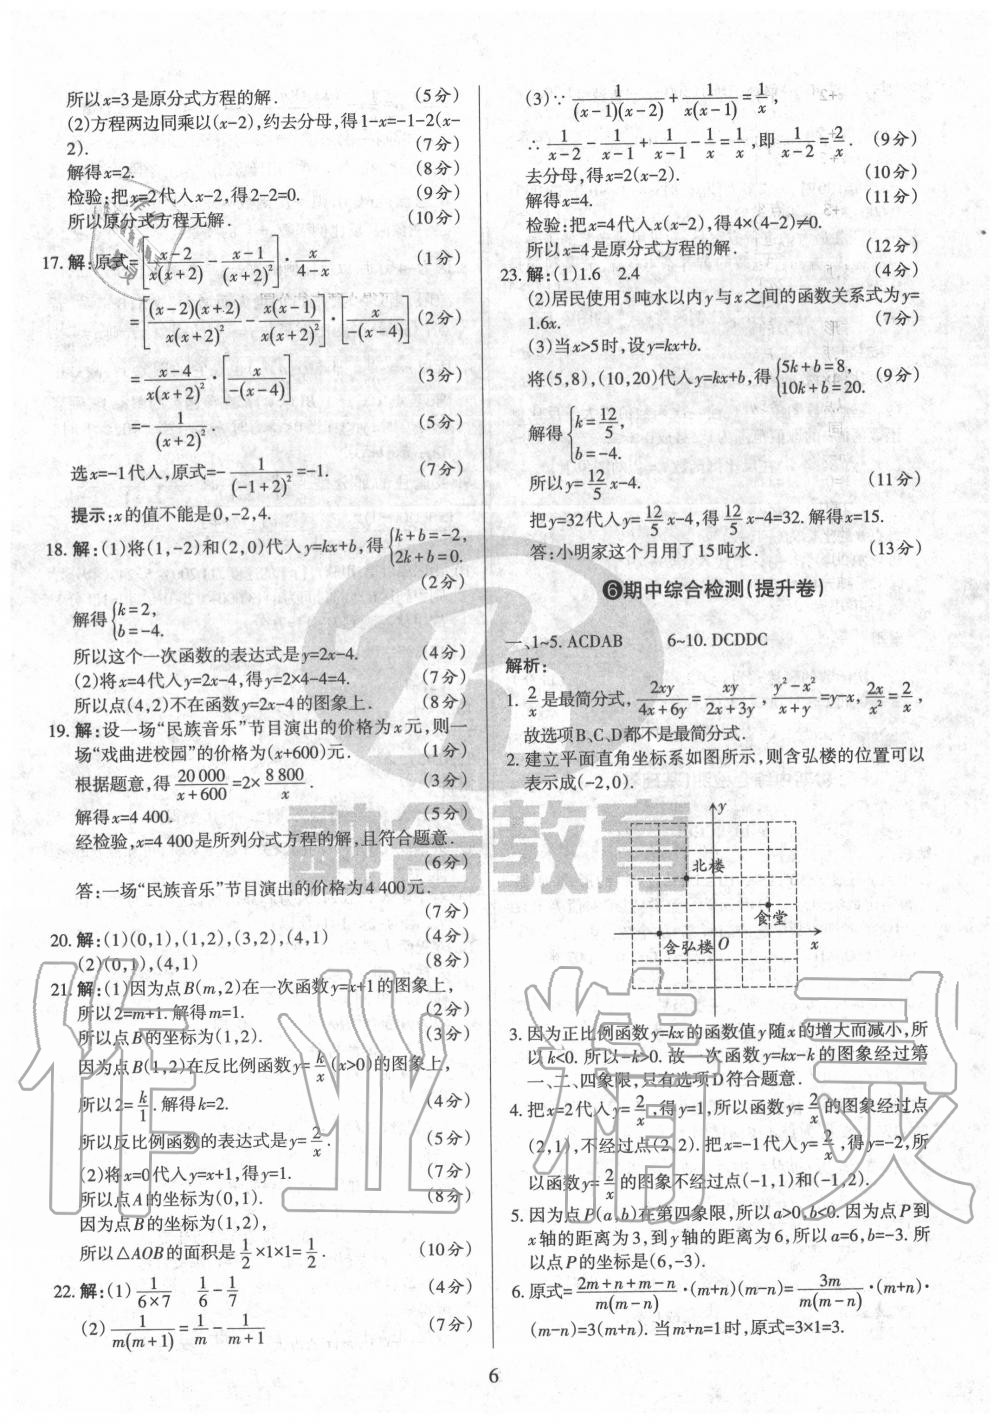 所以x=3是原分式方程的解. (5分)
(2)方程两边同乘以(x-2),约去分母,得1-x=-1-2(x-
2). (7分)
解得x=2. (8分)
检验:把x=2代入x-2,得2-2=0. (9分)
所以原分式方程无解. (10分)
17. 解:原式=[(x-2)/(x(x+2)) - (x-1)/(x+2)²]·x/(4-x) (1分)
=[(x-2)(x+2)/(x(x+2)²) - x(x-1)/(x(x+2)²)]·[x/(-(x-4))] (2分)
=(x-4)/(x(x+2)²)·[x/(-(x-4))] (3分)
=-1/(x+2)². (5分)
选x=-1代入,原式=-1/(-1+2)²=-1. (7分)
提示:x的值不能是0,-2,4.
18. 解:(1)将(1,-2)和(2,0)代入y=kx+b,得{k+b=-2, 2k+b=0.
(2分)
解得{k=2, b=-4.
所以这个一次函数的表达式是y=2x-4. (4分)
(2)将x=4代入y=2x-4,得y=2×4-4=4. (7分)
所以点(4,2)不在函数y=2x-4的图象上. (8分)
19. 解:设一场“民族音乐”节目演出的价格为x元,则一
场“戏曲进校园”的价格为(x+600)元. (1分)
根据题意,得20 000/(x+600)=2×8 800/x. (3分)
解得x=4 400. (5分)
经检验,x=4 400是所列分式方程的解,且符合题意.
(6分)
答:一场“民族音乐”节目演出的价格为4 400元.
(7分)
20. 解:(1)(0,1),(1,2),(3,2),(4,1) (4分)
(2)(0,1),(4,1) (8分)
21. 解:(1)因为点B(m,2)在一次函数y=x+1的图象上,
所以2=m+1.解得m=1. (2分)
所以点B的坐标为(1,2). (3分)
因为点B(1,2)在反比例函数y=k/x(x>0)的图象上,
所以2=k/1.解得k=2. (4分)
所以反比例函数的表达式是y=2/x. (5分)
(2)将x=0代入y=x+1,得y=1. (7分)
所以点A的坐标为(0,1). (8分)
因为点B的坐标为(1,2),
所以△AOB的面积是1/2×1×1=1/2. (10分)
22. 解:(1)1/(6×7) 1/6-1/7 (4分)
(2)1/(m(m+1))=1/m-1/(m+1) (7分)
(3)∵1/((x-1)(x-2))+1/(x(x-1))=1/x,
∴1/(x-2)-1/(x-1)+1/(x-1)-1/x=1/x,即1/(x-2)=2/x. (9分)
去分母,得x=2(x-2). (10分)
解得x=4. (11分)
检验:把x=4代入x(x-2),得4×(4-2)≠0.
所以x=4是原分式方程的解. (12分)
23. 解:(1)1.6 2.4 (4分)
(2)居民使用5吨水以内y与x之间的函数关系式为y=
1.6x. (7分)
(3)当x>5时,设y=kx+b.
将(5,8),(10,20)代入y=kx+b,得{5k+b=8, 10k+b=20. (9分)
解得{k=12/5, b=-4.
所以y=12/5x-4. (11分)
把y=32代入y=12/5x-4,得12/5x-4=32.解得x=15.
答:小明家这个月用了15吨水. (13分)
❻期中综合检测(提升卷)
一、1~5. ACDAB 6~10. DCDDC
解析:
1. 2/x是最简分式,2xy/(4x+6y)=xy/(2x+3y),(y²-x²)/(x+y)=y-x,2x/x²=2/x,
故选项B、C、D都不是最简分式.
2. 建立平面直角坐标系如图所示,则含弘楼的位置可以
表示成(-2,0).
y
北楼
食堂
含弘楼 O x
3. 因为正比例函数y=kx的函数值y随x的增大而减小,所
以k<0.所以-k>0.故一次函数y=kx-k的图象经过第
一、二、四象限,只有选项D符合题意.
4. 把x=2代入y=2/x,得y=1,所以函数y=2/x的图象经过点
(2,1),不经过点(2,2).把x=-1代入y=2/x,得y=-2,所
以函数y=2/x的图象不经过点(-1,1)和(-1,2).
5. 因为点P(a,b)在第四象限,所以a>0,b<0.因为点P到
x轴的距离为3,到y轴的距离为6,所以a=6,b=-3.所
以点P的坐标是(6,-3).
6. 原式=(2m+n+m-n)/(m(m-n))·(m+n)(m-n)=3m/(m(m-n))·(m+n)·
(m-n)=3(m+n).当m+n=1时,原式=3×1=3.
6
融合教育
作业精灵